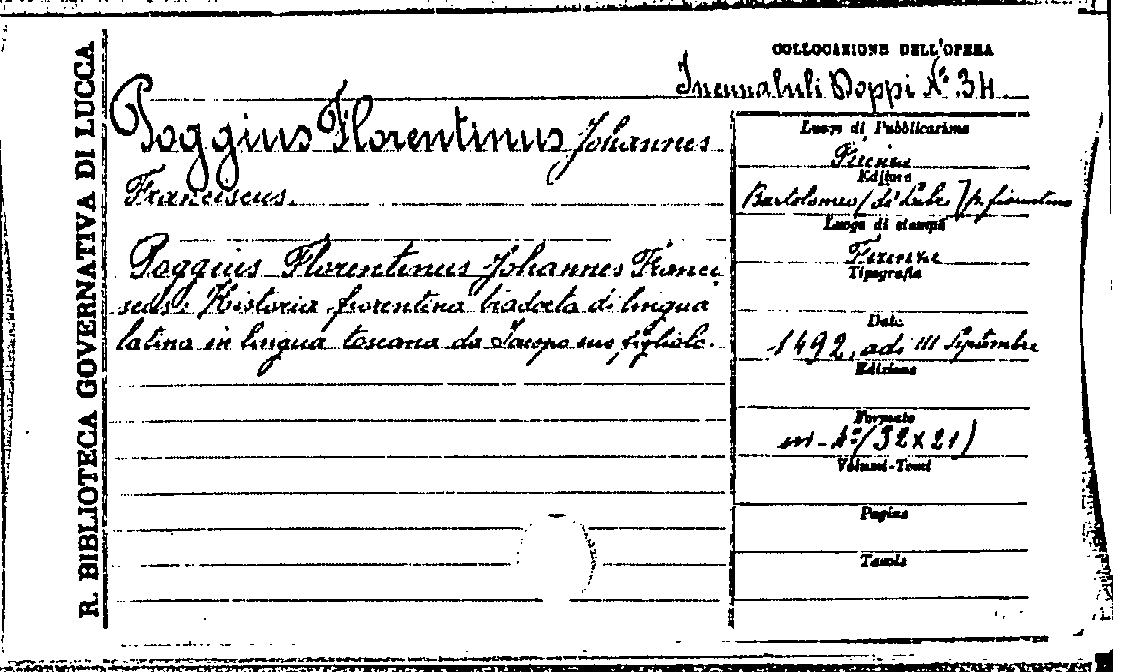 R. BIBLIOTECA GOVERNATIVA DI LUCCA
COLLOCAZIONE DELL'OPERA
Incunabuli Doppi N.° 34
Poggius Florentinus Johannes
Franciscus.
Poggius Florentinus Johannes Franci
scus: Historia fiorentina tradocta di lingua
latina in lingua toscana da Jacopo suo figliolo.
Luogo di Pubblicazione
Firenze
Editore
Bartolomeo (di Libri) p. fiorentino
Luogo di stampa
Firenze
Tipografia
Data
1492, adi III Septembre
Edizione
Formato
in-4° (32x21)
Volumi-Tomi
Pagine
Tavole